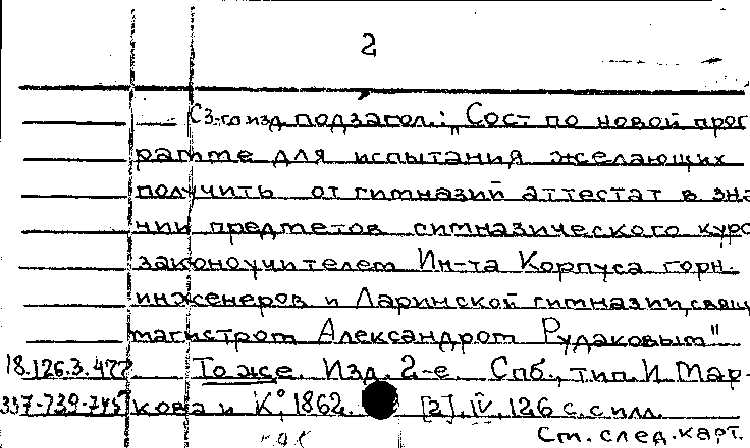 2
С 3-го изд. подзагол.: „Сост. по новой прог
рамме для испытания желающих
получить от гимназий аттестат в зна
нии предметов гимназического курс
законоучителем Ин-та Корпуса горн.
инженеров и Ларинской гимназии, свящ.
магистром Александром Рудаковым"
18.126.3.477 То же. Изд. 2-е. Спб., тип. И. Мар-
337-739-745 кова и К°, 1862. [2], IV, 126 с. с илл.
См. след. карт.